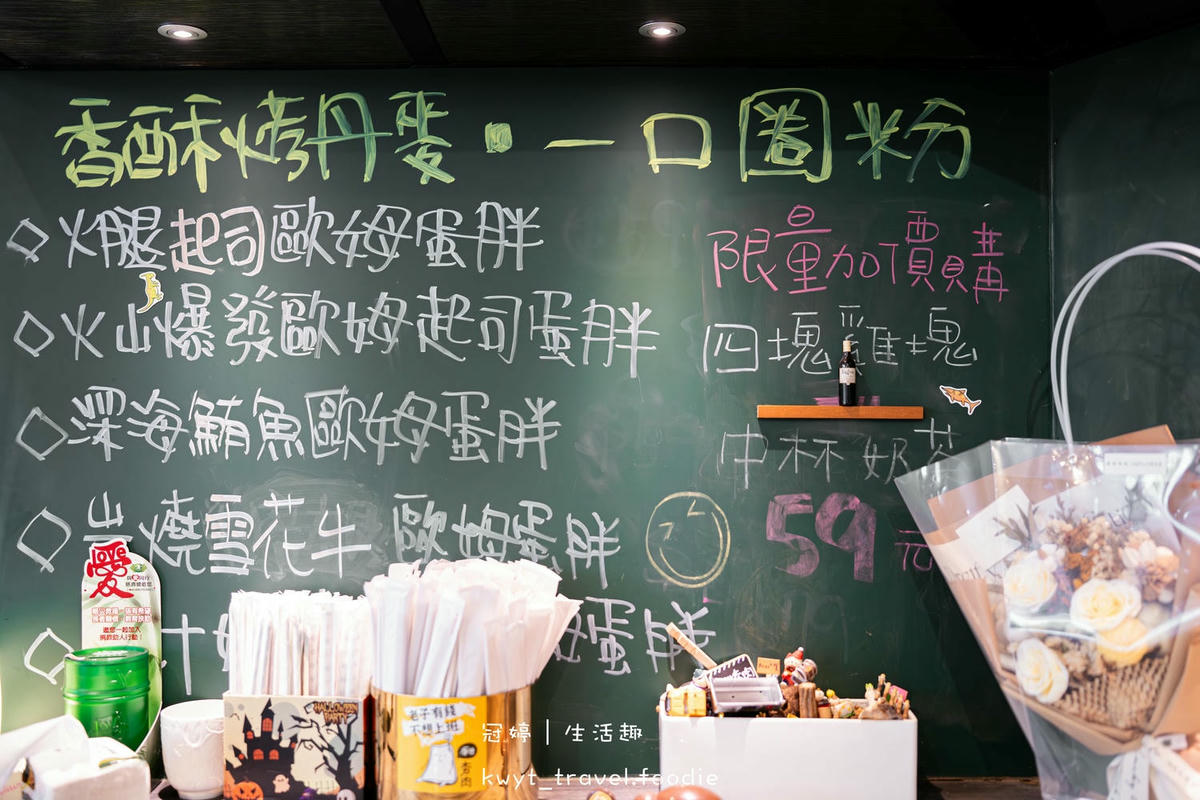 香酥烤丹麥・一口圈粉
◇火腿起司歐姆蛋胖
◇火山爆發歐姆起司蛋胖
◇深海鮪魚歐姆蛋胖
◇炙燒雪花牛 歐姆蛋胖
蛋胖
限量加價購
四塊雞塊
中杯奶茶
59元
愛
Love
邀您一起加入
捐款助人行動!
HALLOWEEN
PARTY
老子有錢
不想上班
冠婷|生活趣
kwyt_travel.foodie